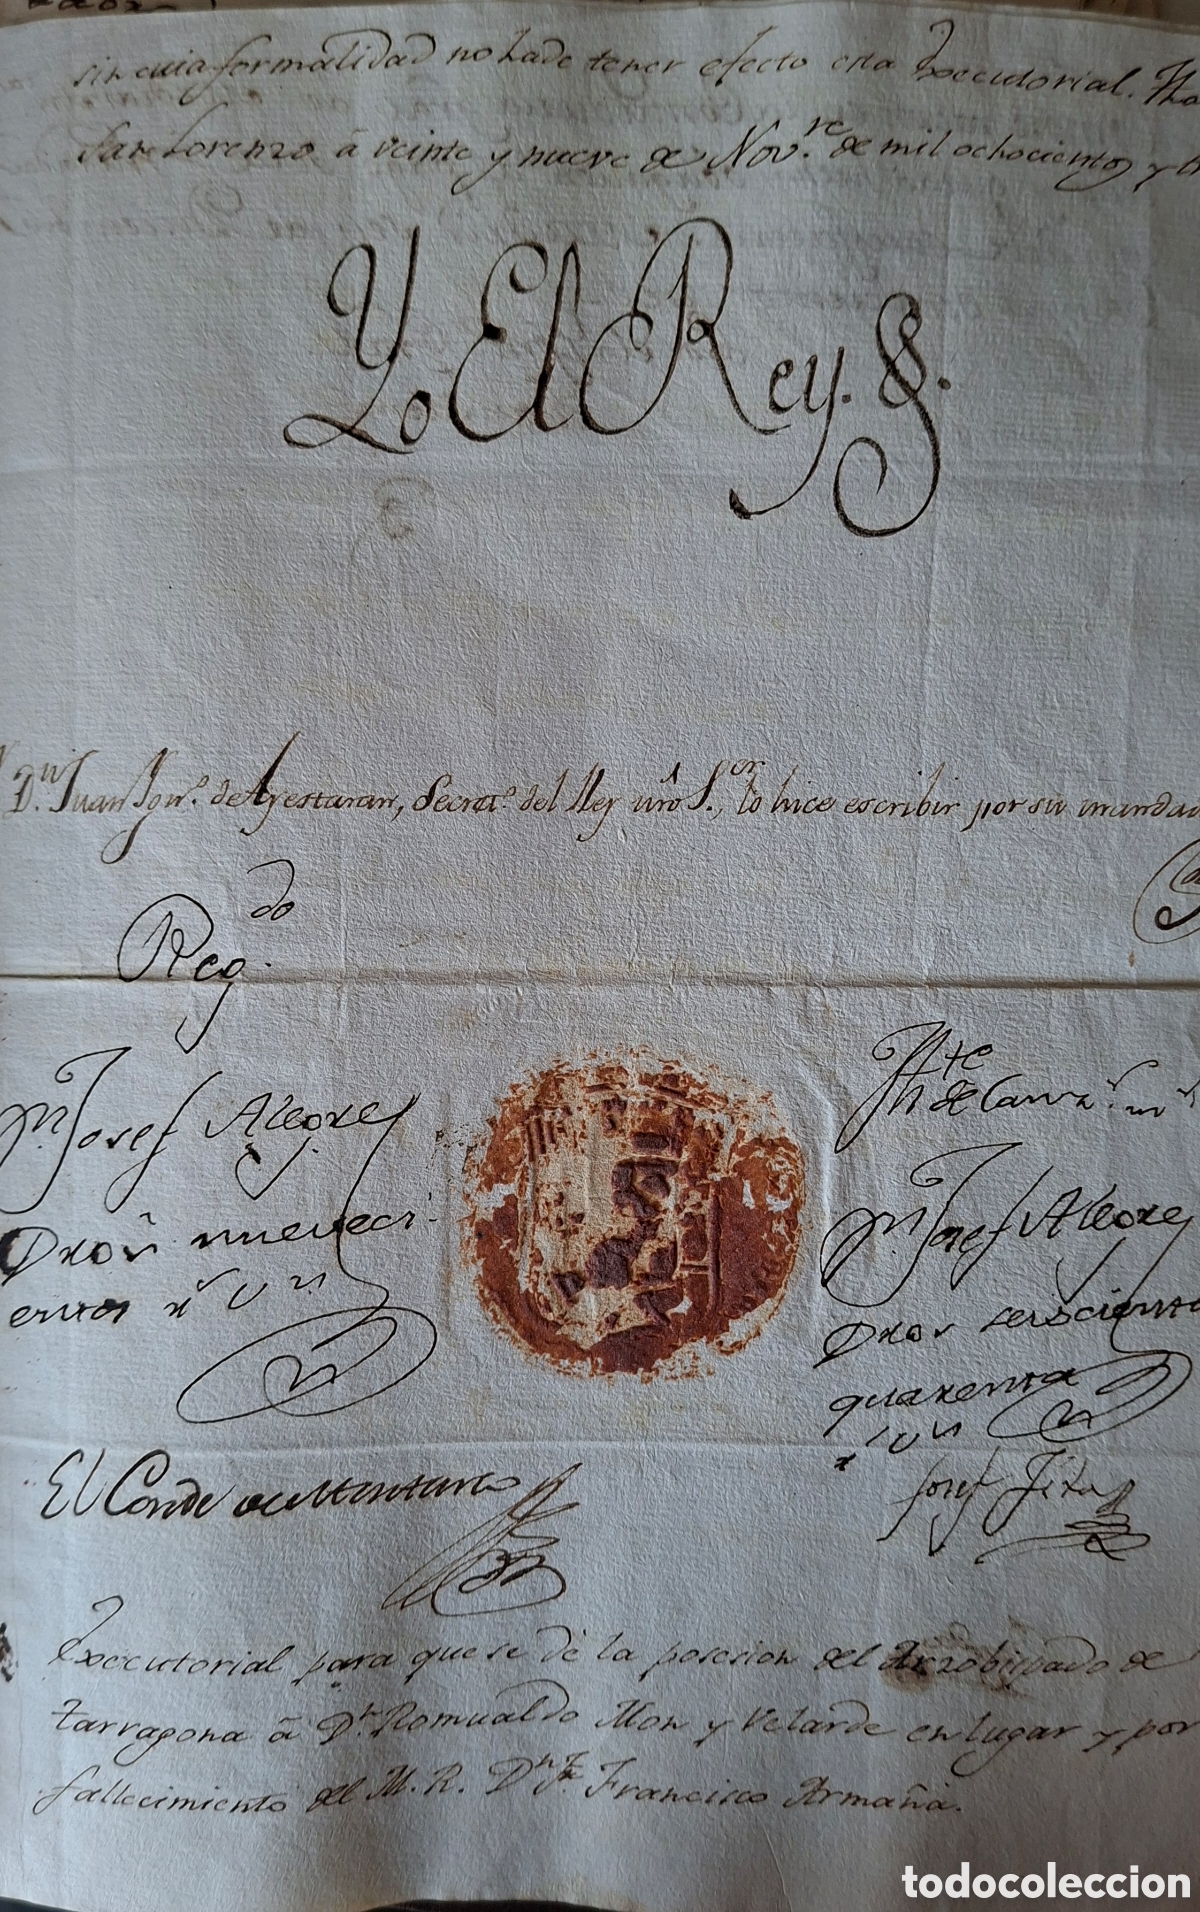 sin cuia formalidad no hade tener efecto esta Executorial. Fho
San Lorenzo â veinte y nueve de Nov.re de mil ochocientos y
Yo El Rey. &.
D.n Juan Ign.o de Ayestaran, Secret.o del Rey nro S.or, lo hice escribir por su mandad
Reg.do
Th.te
de Canz.r m.r
m. Josef Alegre
m. Josef Alegre
Dros nueveci
entos r.s v.n
Dros seiscientos
quarenta
r.s v.n
El Conde de Montarco
Josef
Executorial para que se dè la posesion del Arzobispado de
Tarragona â D.n Romualdo Mon y Velarde en lugar y por
fallecimiento del M. R. D.n F. Francisco Armañà.
todocoleccion